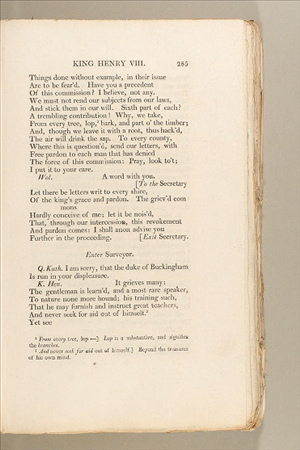 KING HENRY VIII. 285
Things done without example, in their issue
Are to be fear'd. Have you a precedent
Of this commission? I believe, not any.
We must not rend our subjects from our laws,
And stick them in our will. Sixth part of each?
A trembling contribution! Why, we take,
From every tree, lop,¹ bark, and part o' the timber;
And, though we leave it with a root, thus hack'd,
The air will drink the sap. To every county,
Where this is question'd, send our letters, with
Free pardon to each man that has denied
The force of this commission: Pray, look to't;
I put it to your care.
Wol. A word with you.
[To the Secretary
Let there be letters writ to every shire,
Of the king's grace and pardon. The griev'd com
mons
Hardly conceive of me; let it be nois'd,
That, through our intercession, this revokement
And pardon comes: I shall anon advise you
Further in the proceeding. [Exit Secretary.
Enter Surveyor.
Q. Kath. I am sorry, that the duke of Buckingham
Is run in your displeasure.
K. Hen. It grieves many:
The gentleman is learn'd, and a most rare speaker,
To nature none more bound; his training such,
That he may furnish and instruct great teachers,
And never seek for aid out of himself.²
Yet see
¹ From every tree, lop —] Lop is a substantive, and signifies
the branches.
² And never seek for aid out of himself.] Beyond the treasures
of his own mind.